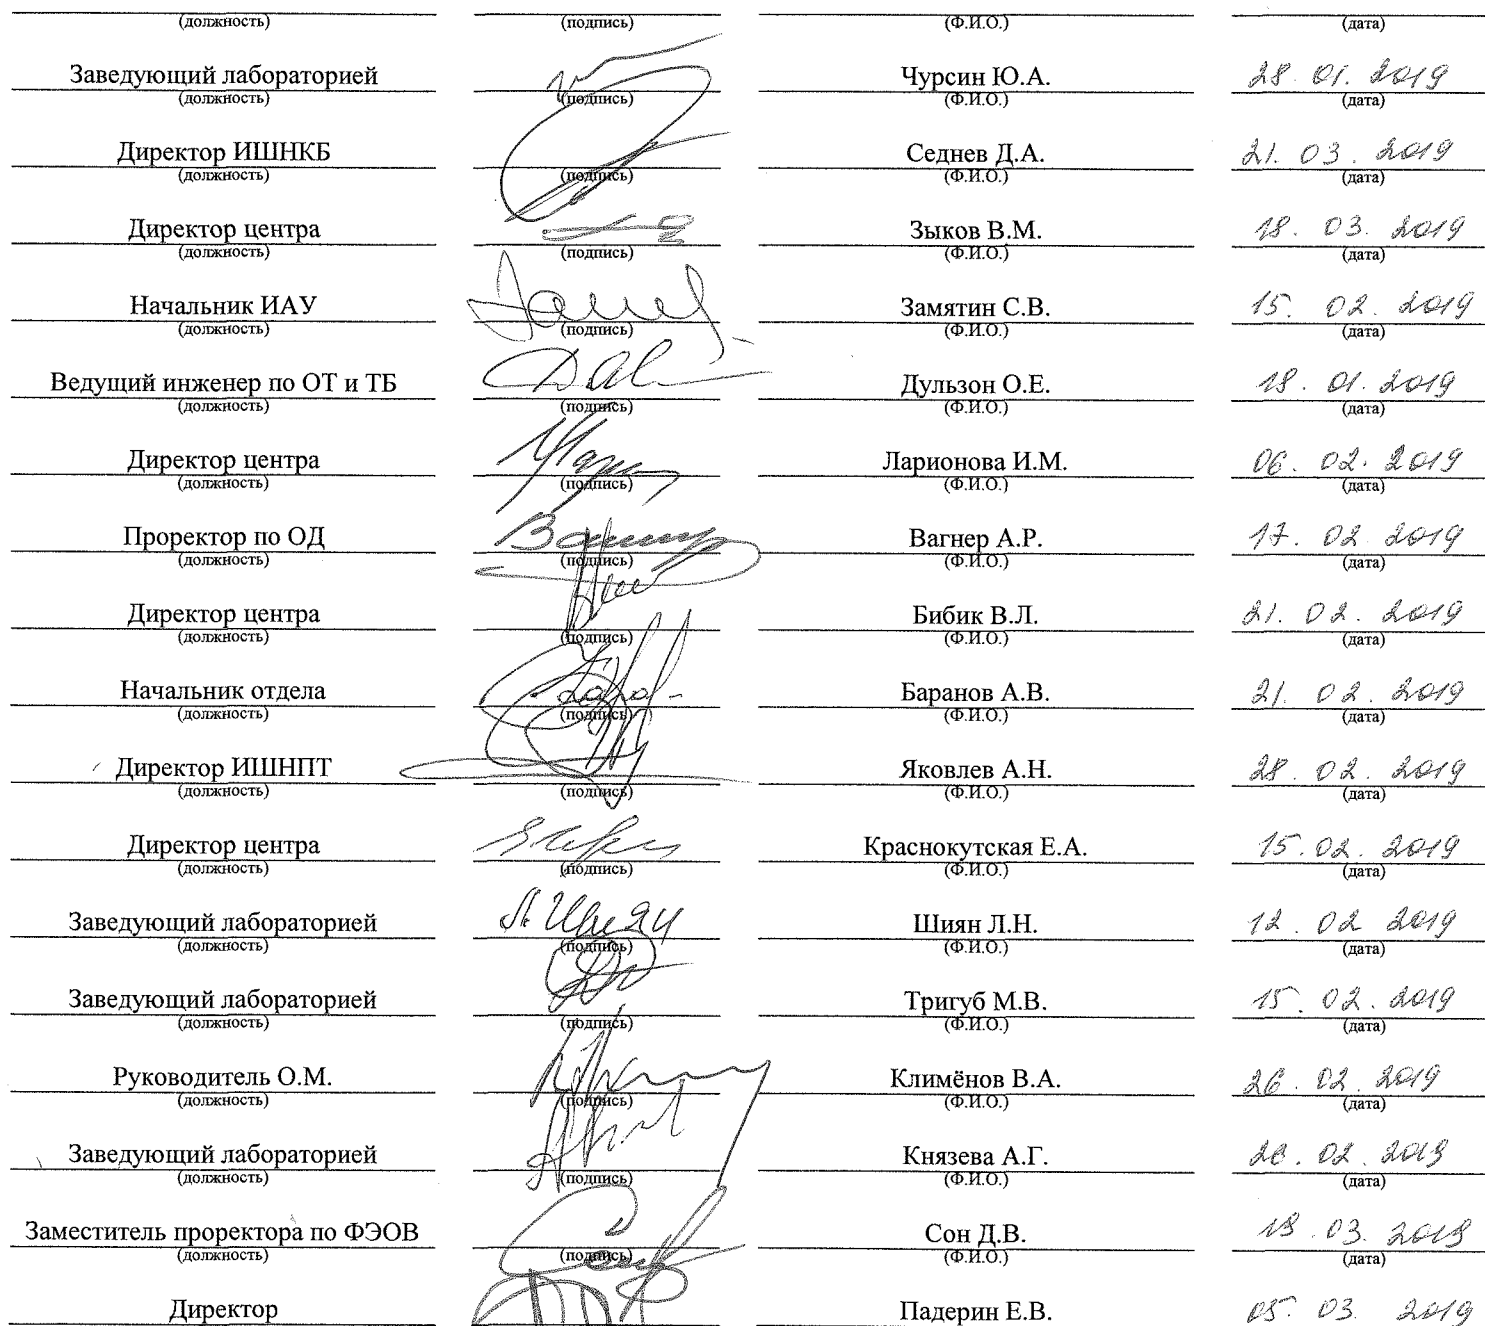 (должность) (подпись) (Ф.И.О.) (дата)
Заведующий лабораторией Чурсин Ю.А. 28.01.2019
(должность) (подпись) (Ф.И.О.) (дата)
Директор ИШНКБ Седнев Д.А. 21.03.2019
(должность) (подпись) (Ф.И.О.) (дата)
Директор центра Зыков В.М. 18.03.2019
(должность) (подпись) (Ф.И.О.) (дата)
Начальник ИАУ Замятин С.В. 15.02.2019
(должность) (подпись) (Ф.И.О.) (дата)
Ведущий инженер по ОТ и ТБ Дульзон О.Е. 18.01.2019
(должность) (подпись) (Ф.И.О.) (дата)
Директор центра Ларионова И.М. 06.02.2019
(должность) (подпись) (Ф.И.О.) (дата)
Проректор по ОД Вагнер А.Р. 17.02.2019
(должность) (подпись) (Ф.И.О.) (дата)
Директор центра Бибик В.Л. 21.02.2019
(должность) (подпись) (Ф.И.О.) (дата)
Начальник отдела Баранов А.В. 21.02.2019
(должность) (подпись) (Ф.И.О.) (дата)
Директор ИШНПТ Яковлев А.Н. 28.02.2019
(должность) (подпись) (Ф.И.О.) (дата)
Директор центра Краснокутская Е.А. 15.02.2019
(должность) (подпись) (Ф.И.О.) (дата)
Заведующий лабораторией Л. Шиян Шиян Л.Н. 12.02 2019
(должность) (подпись) (Ф.И.О.) (дата)
Заведующий лабораторией Тригуб М.В. 15.02.2019
(должность) (подпись) (Ф.И.О.) (дата)
Руководитель О.М. Климёнов В.А. 26.02.2019
(должность) (подпись) (Ф.И.О.) (дата)
Заведующий лабораторией Князева А.Г. 26.02.2019
(должность) (подпись) (Ф.И.О.) (дата)
Заместитель проректора по ФЭОВ Сон Д.В. 19.03.2019
(должность) (подпись) (Ф.И.О.) (дата)
Директор Падерин Е.В. 05.03 2019